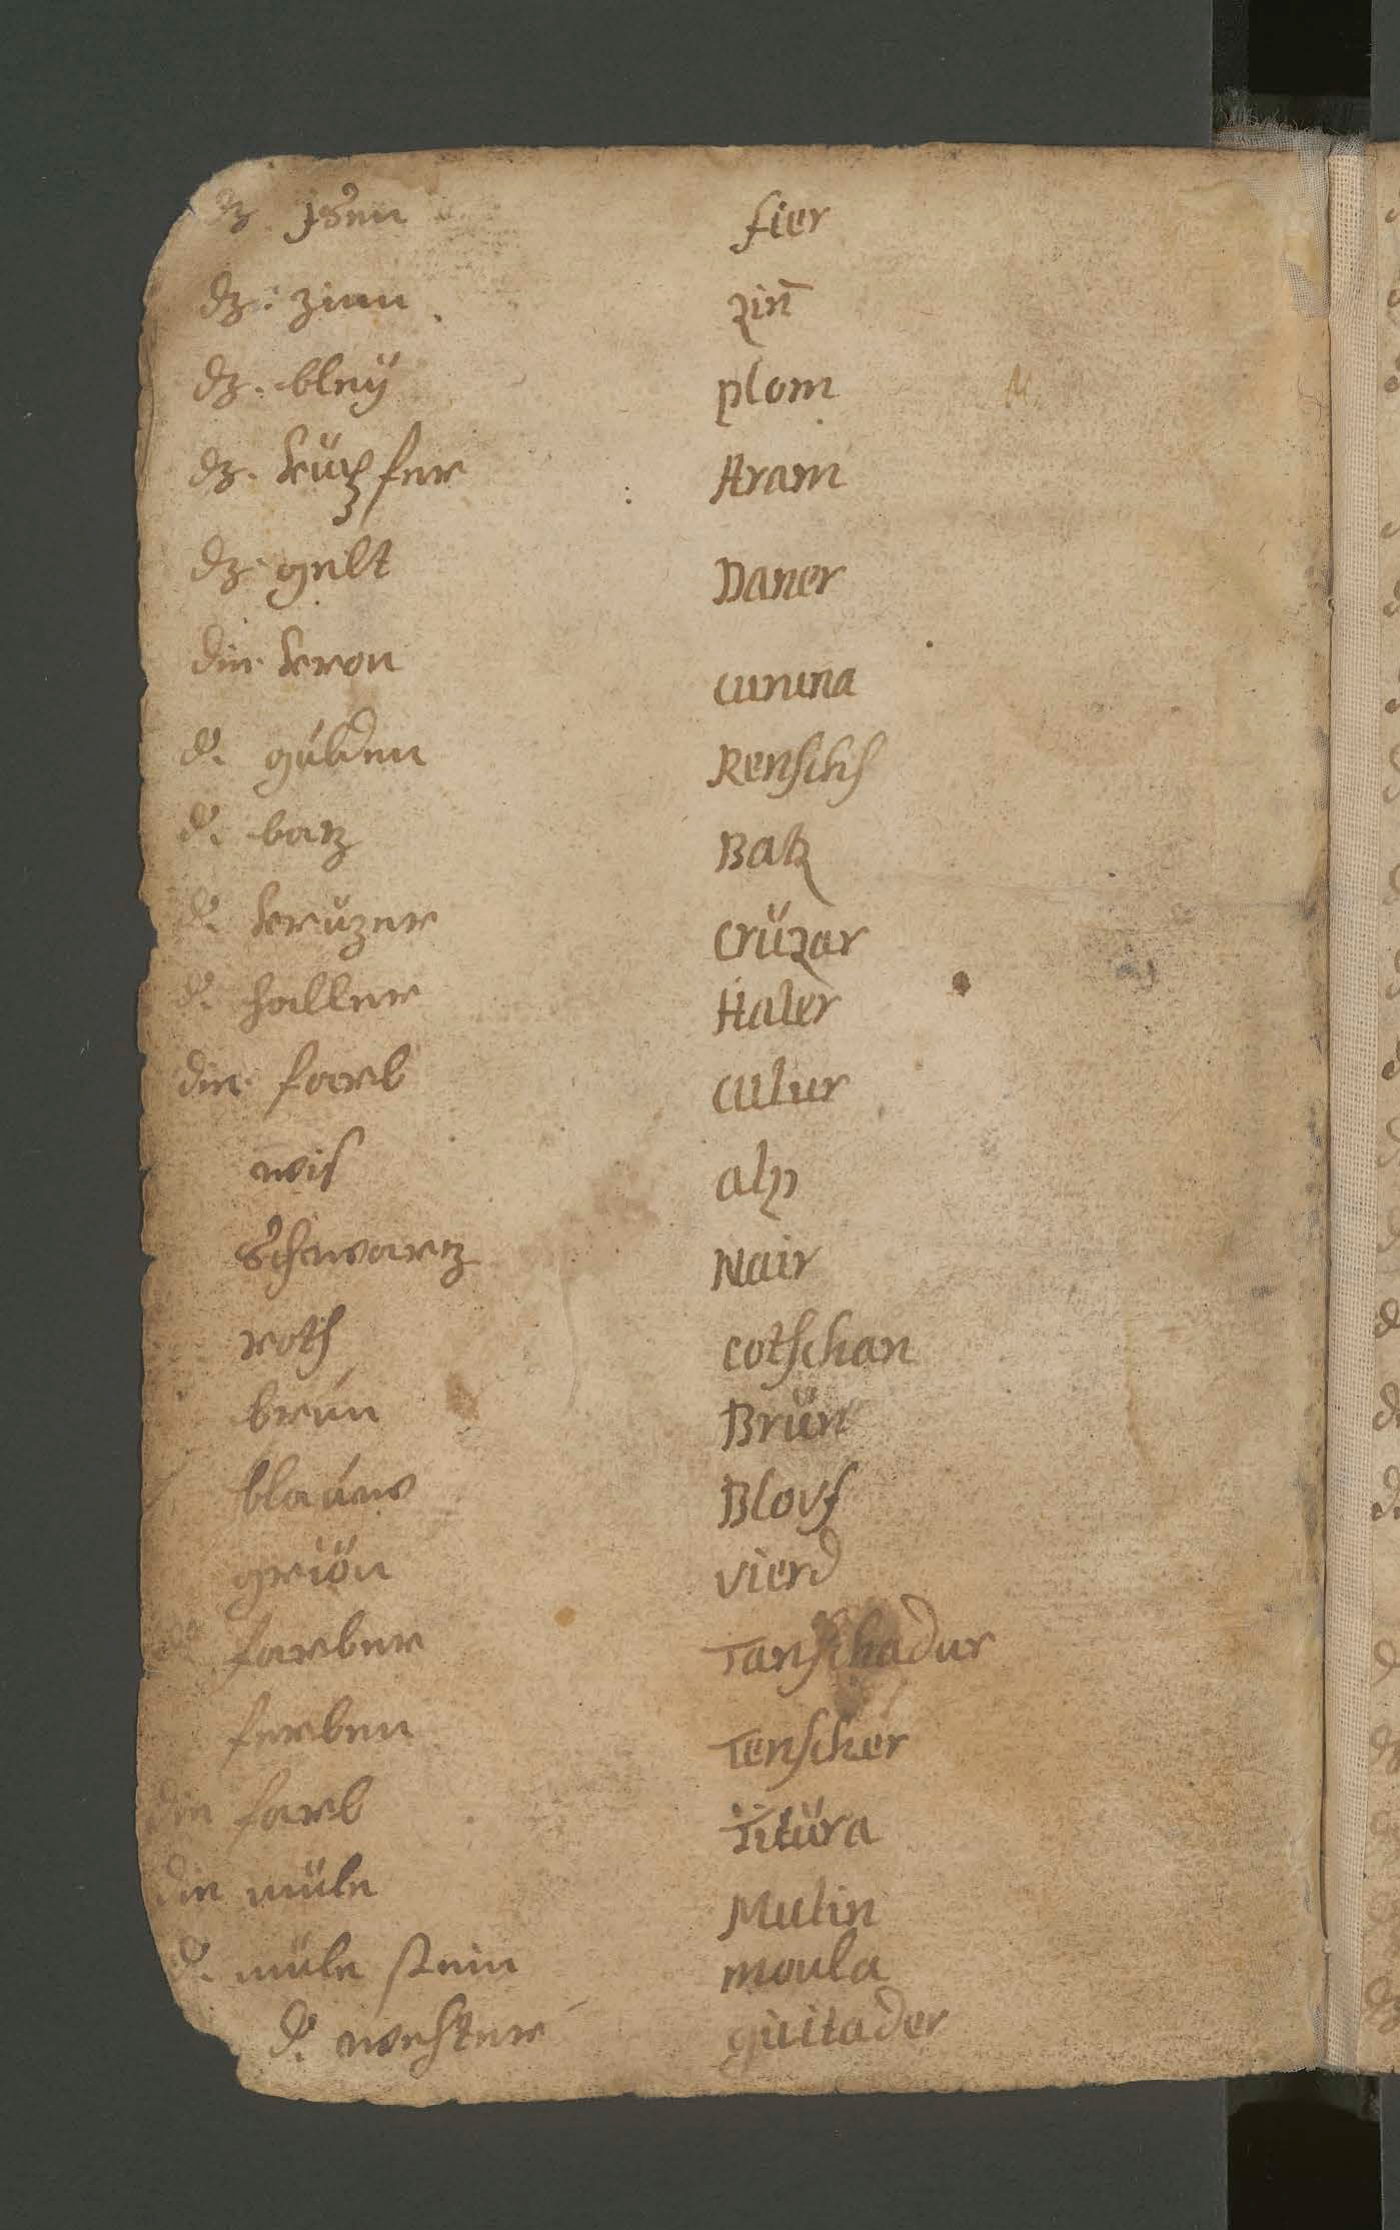 dz. jsen fier
dz. zinn zin̄
dz. bleÿ plom
dz. kupfer Aram
dz gelt Daner
die kron cunina
d. gúlden Renschs
d. batz Batz
d. krüzer crüzar
d. haller Haler
die farb culur
wis alp
schwartz Nair
roth cotschan
brún Brün
blaúw Blovs
griön vierd
d. farber Tanschadur
ferben Tenscher
die farb Titüra
die müle Mulin
d. müle stein moula
d. guitader